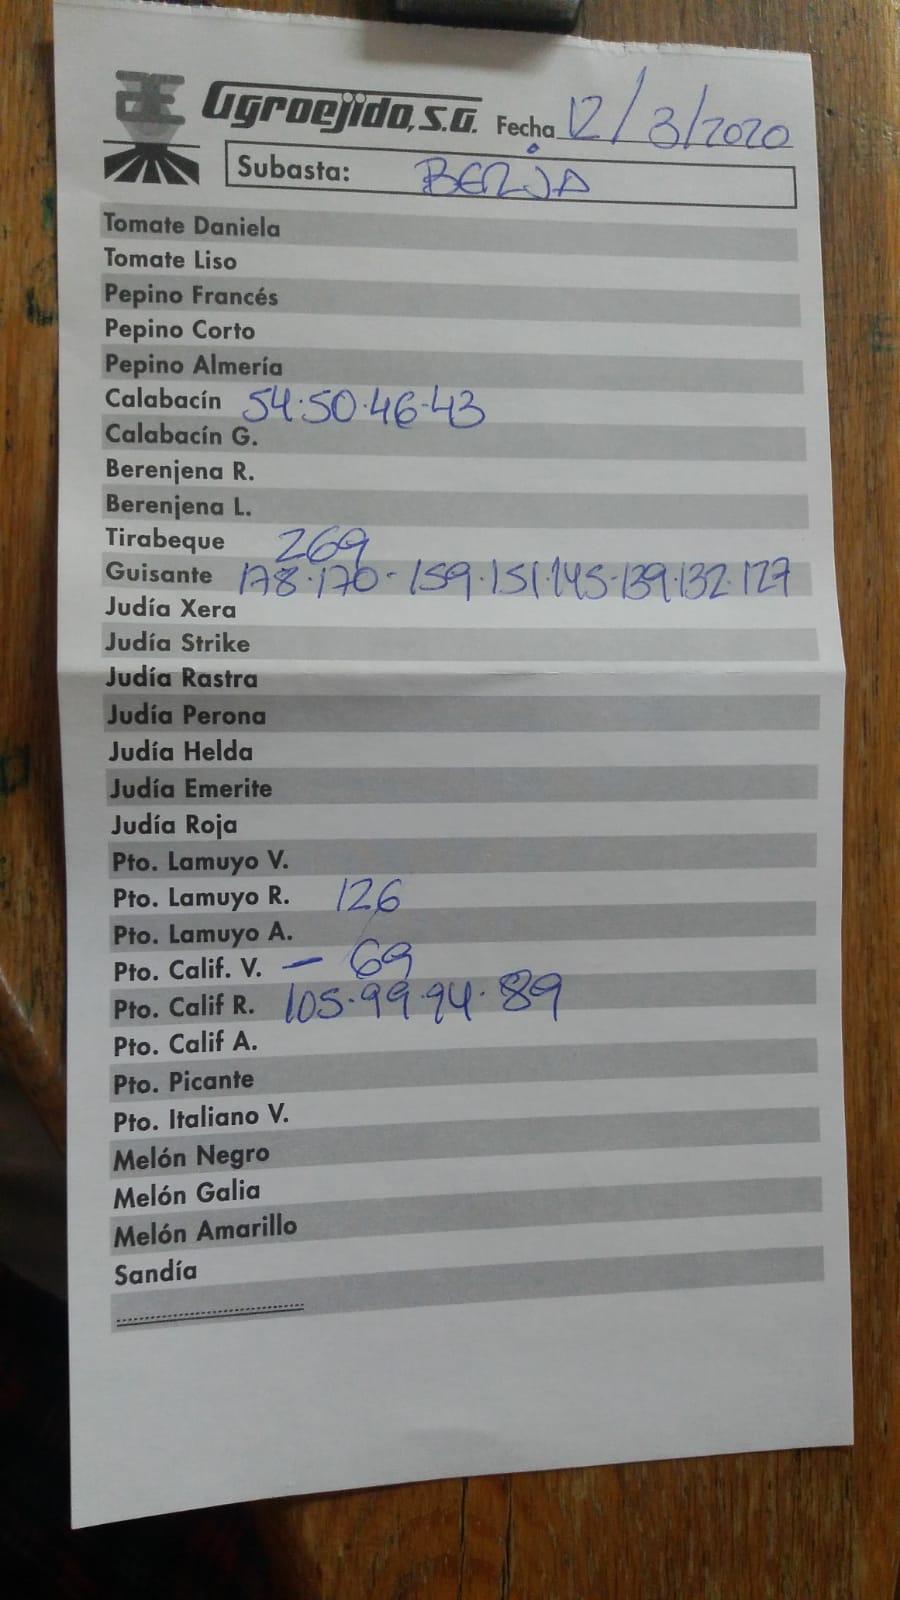 Agroejido, S.A. Fecha 12/3/2020
Subasta: BERJA
Tomate Daniela
Tomate Liso
Pepino Francés
Pepino Corto
Pepino Almería
Calabacín 54·50·46·43
Calabacín G.
Berenjena R.
Berenjena L.
Tirabeque 269
Guisante 178·170-159·151·145-139·132·127
Judía Xera
Judía Strike
Judía Rastra
Judía Perona
Judía Helda
Judía Emerite
Judía Roja
Pto. Lamuyo V.
Pto. Lamuyo R. 126
Pto. Lamuyo A.
Pto. Calif. V. — 69
Pto. Calif R. 105·99·94·89
Pto. Calif A.
Pto. Picante
Pto. Italiano V.
Melón Negro
Melón Galia
Melón Amarillo
Sandía